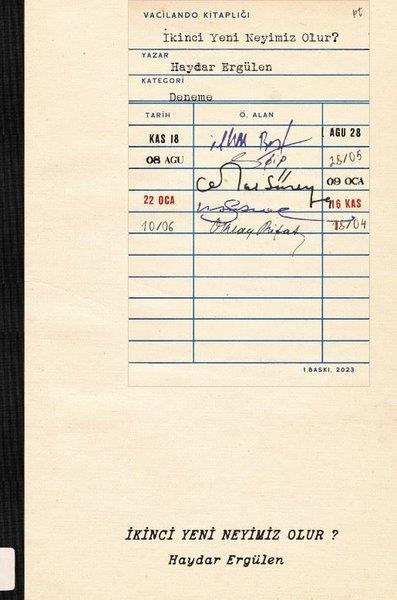 VACİLANDO KİTAPLIĞI
pt
İkinci Yeni Neyimiz Olur?
YAZAR
Haydar Ergülen
KATEGORİ
Deneme
TARİH Ö. ALAN
KAS 18 İlhan Berk AGU 28
08 AGU Edip 28/05
Cemal Süreya 09 OCA
22 OCA 16 KAS
10/06 Oktay Rifat 18/04
1.BASKI, 2023
İKİNCİ YENİ NEYİMİZ OLUR ?
Haydar Ergülen